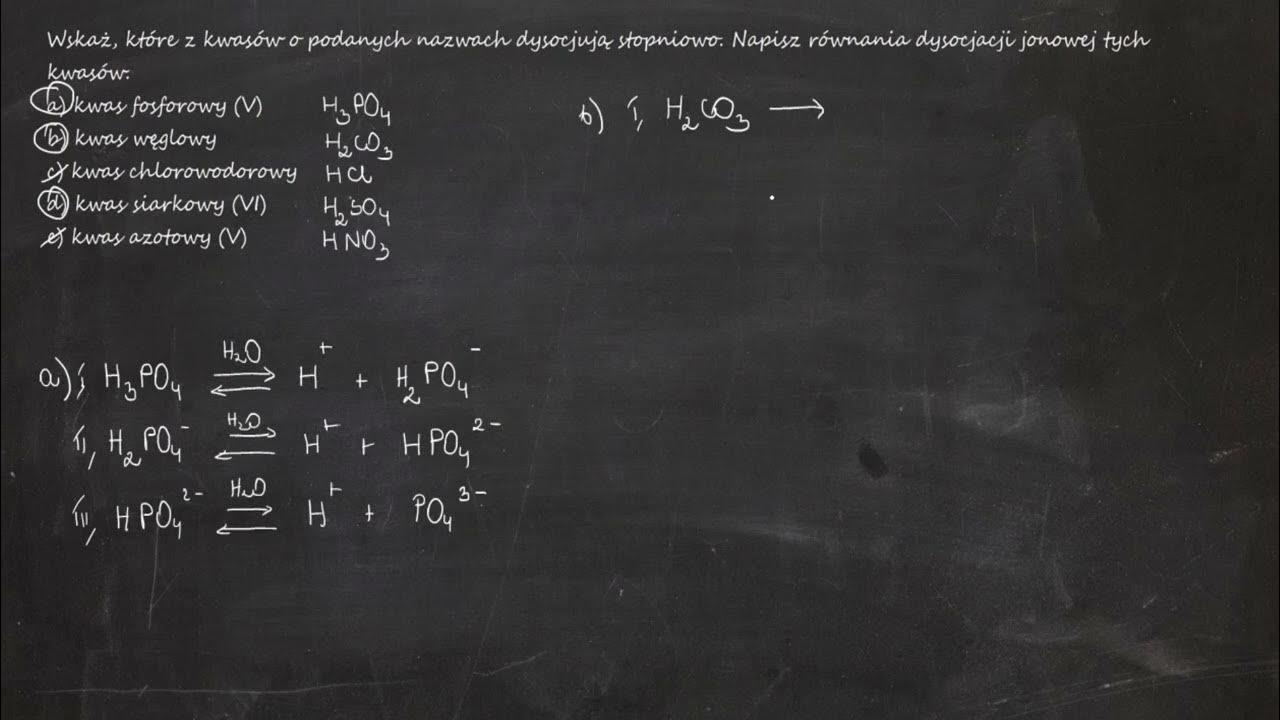 Wskaż, które z kwasów o podanych nazwach dysocjują stopniowo. Napisz równania dysocjacji jonowej tych
kwasów.
a) kwas fosforowy (V) H₃PO₄
b) kwas węglowy H₂CO₃
c) kwas chlorowodorowy HCl
d) kwas siarkowy (VI) H₂SO₄
e) kwas azotowy (V) HNO₃
b) I, H₂CO₃ →
a) I, H₃PO₄ ⇌ H₂O H⁺ + H₂PO₄⁻
II, H₂PO₄⁻ ⇌ H₂O H⁺ + HPO₄²⁻
III, HPO₄²⁻ ⇌ H₂O H⁺ + PO₄³⁻